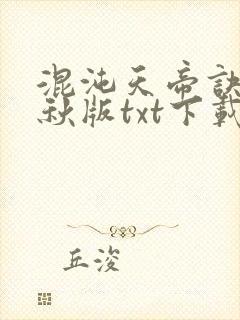 混沌天帝訣
秋版txt下載
丘浚